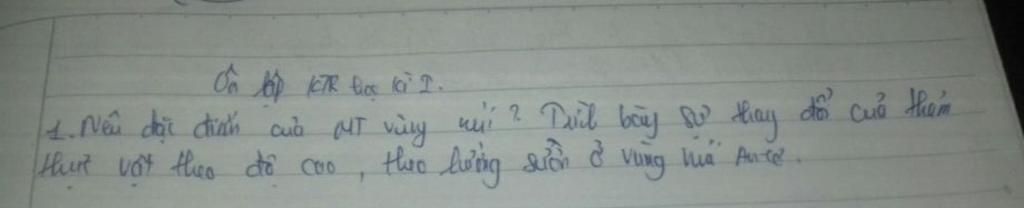 Ôn tập KTR học kì I.
1. Nêu đặc điểm của MT vùng núi? Trình bày sự thay đổi của thảm
thực vật theo độ cao, theo hướng sườn ở vùng núi An-cơ.